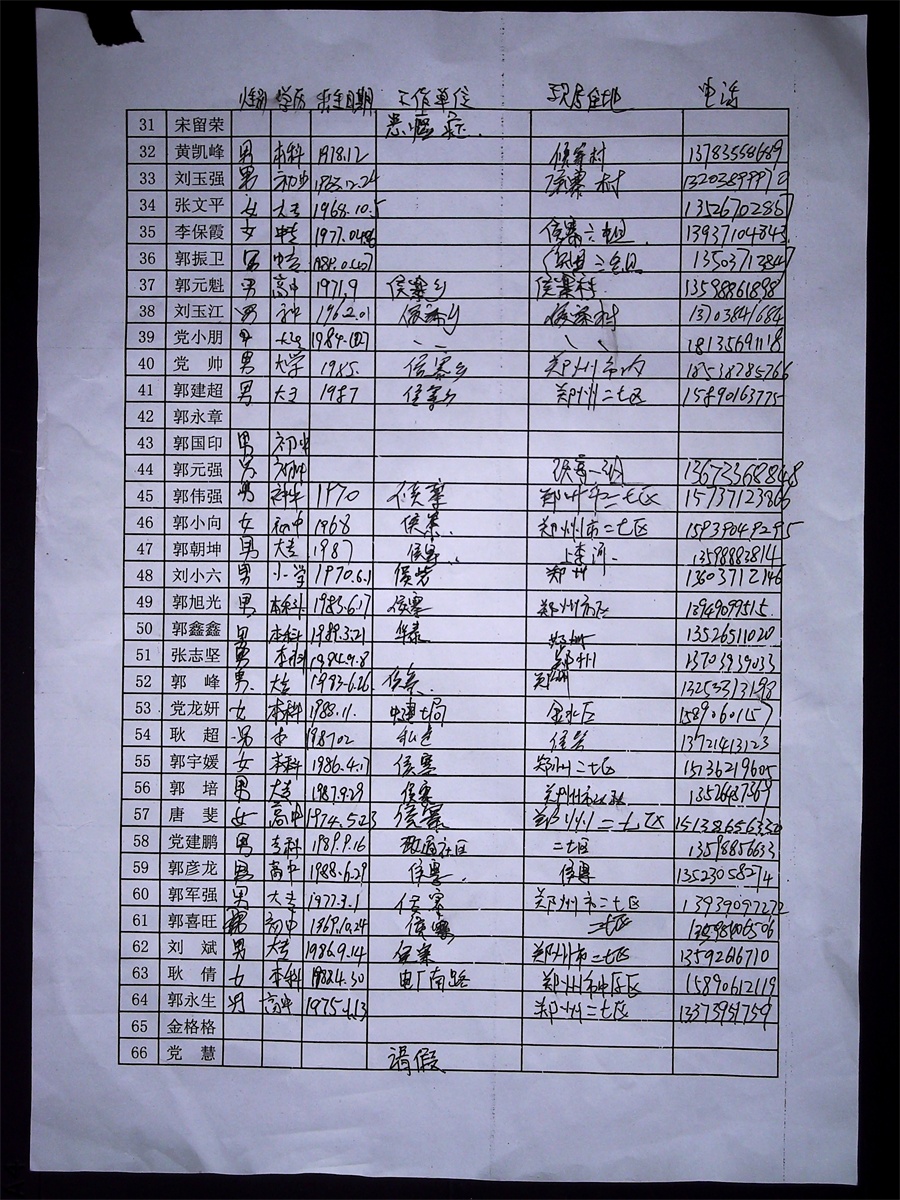 性别 学历 出生日期 工作单位 现居住地 电话
31 宋留荣 患癌症.
32 黄凯峰 男 本科 1978.12 侯寨村 13783558689
33 刘玉强 男 初中 1963.12.24 侯寨村
34 张文平 女 大专 1968.10.5 13526702867
35 李保霞 女 中专 侯寨六组 13937104843
36 郭振卫 男 中专 13503712847
37 郭元魁 男 高中 1971.9 侯寨乡 侯寨村 13598861898
38 刘玉江 男 初中 1962.01 侯寨乡 侯寨村 13703841684
39 党小朋 男 18135691118
40 党 帅 男 大学 1985. 侯寨乡 郑州市内 18538285766
41 郭建超 男 大专 1987 侯寨乡 郑州二七区 15890163775
42 郭永章
43 郭国印 男 初中
44 郭元强 男 初中 13673368848
45 郭伟强 男 1970 侯寨 郑州市二七区 15737123866
46 郭小向 女 初中 1968 侯寨. 郑州市二七区
47 郭朝坤 男 大专 1987 侯寨 上李河 13598883814
48 刘小六 男 小学 1970.6.1 侯寨 郑州 13603712146
49 郭旭光 男 本科 1983.6.17 侯寨 郑州市区 13949099515.
50 郭鑫鑫 男 本科 1989.3.21 郑州 13526511020
51 张志坚 男 本科 1984.9.8 郑州 13703939033
52 郭 峰 男. 大专 1983.6.26 侯寨. 郑州 13253313198
53 党龙妍 女 本科 1988.11. 中建七局 金水区 15890601157
54 耿 超 男 本 198702 侯寨 13721413123
55 郭宇媛 女 本科 1986.4.17 侯寨 郑州二七区 15136219605
56 郭 培 男 大专 1987.9.29 侯寨 13526487369
57 唐 斐 女 高中 1974.5.23 侯寨 郑州二七区 15138656330
58 党建鹏 男 专科 1989.9.16 二七区 13598856633
59 郭彦龙 男 高中 1988.6.29 侯寨. 侯寨 13523058274
60 郭军强 男 大专 1977.3.1 侯寨 郑州市二七区 13939097272
61 郭喜旺 男 初中 1969.10.24 侯寨 二七区
62 刘 斌 男 大专 1986.9.14 侯寨 郑州市二七区 13592616710
63 耿 倩 女 本科 电厂南路 郑州市中原区 15890612119
64 郭永生 男 高中 郑州二七区 13373951759
65 金格格
66 党 慧 请假